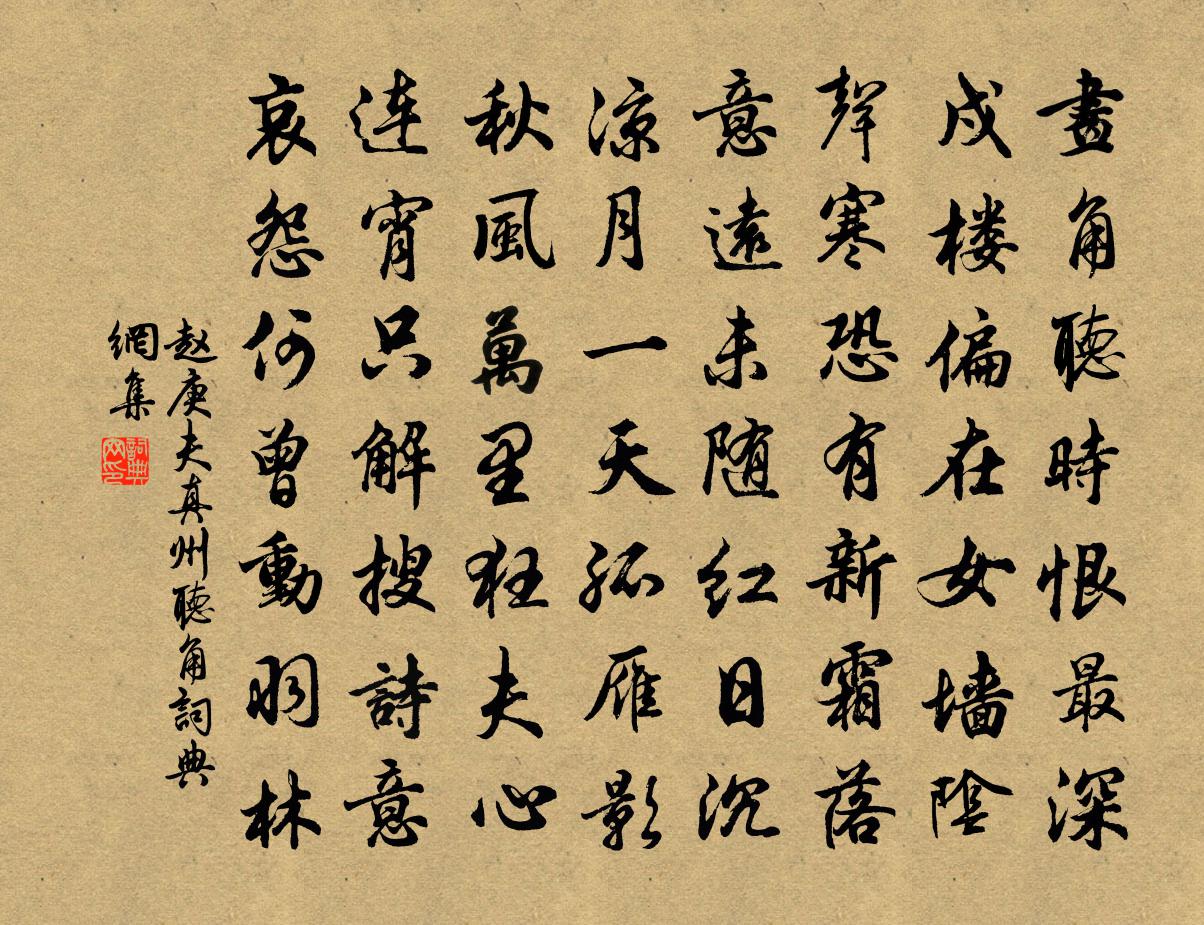 畫角聽時恨最深
戍楼偏在女墻陰
聲寒恐有新霜落
意遠未随红日沉
凉月一天孤雁影
秋風萬里狂夫心
连宵只解搜詩意
哀怨何曾動羽林
赵庚夫真州聽角詞典
網集
詞典
网印